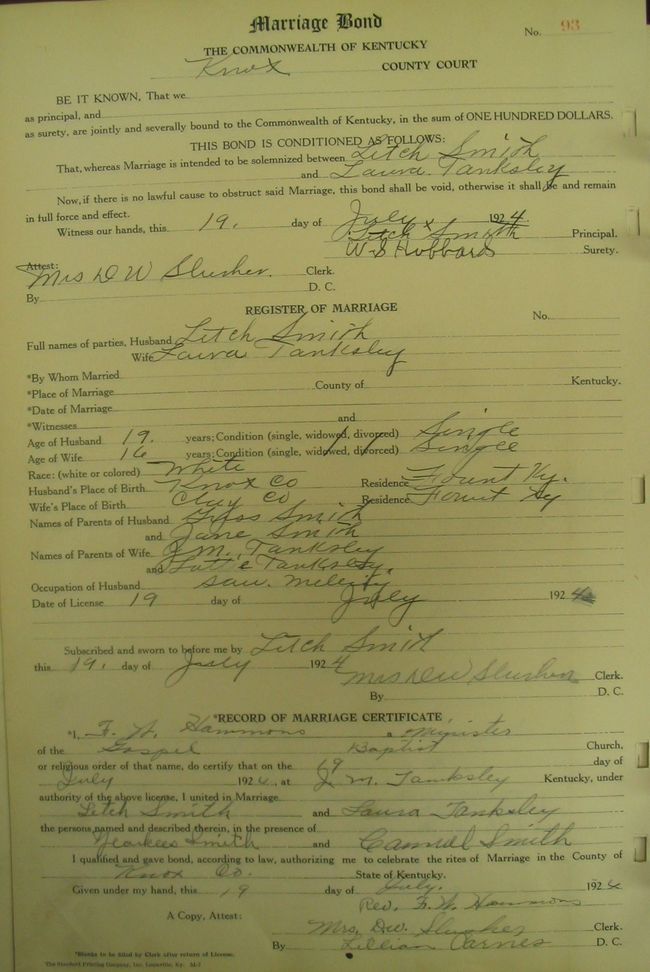 Marriage Bond
No. 93
THE COMMONWEALTH OF KENTUCKY
Knox COUNTY COURT
BE IT KNOWN, That we
as principal, and
as surety, are jointly and severally bound to the Commonwealth of Kentucky, in the sum of ONE HUNDRED DOLLARS.
THIS BOND IS CONDITIONED AS FOLLOWS:
That, whereas Marriage is intended to be solemnized between Letch Smith
and Laura Tanksley
Now, if there is no lawful cause to obstruct said Marriage, this bond shall be void, otherwise it shall be and remain
in full force and effect.
Witness our hands, this 19. day of July 1924.
Letch x Smith Principal.
W. S Hubbard Surety.
Attest:
Mrs D W Slusher. Clerk.
By D. C.
REGISTER OF MARRIAGE
No.
Full names of parties, Husband Letch Smith
Wife Laura Tanksley
*By Whom Married
*Place of Marriage County of Kentucky.
*Date of Marriage
*Witnesses and
Age of Husband 19. years; Condition (single, widowed, divorced) Single
Age of Wife 16 years; Condition (single, widowed, divorced) Single
Race: (white or colored) White
Husband's Place of Birth Knox Co Residence Fount Ky.
Wife's Place of Birth Clay Co Residence Fount Ky
Names of Parents of Husband Smith
and Jane Smith
Names of Parents of Wife J. M. Tanksley
and Tanksley.
Occupation of Husband Saw.
Date of License 19 day of July 1924
Subscribed and sworn to before me by Letch Smith
this 19. day of July 1924
Mrs D W Slusher Clerk.
By D. C.
*RECORD OF MARRIAGE CERTIFICATE
*I, F. W. Hammons a Minister
of the Gospel Baptist Church,
or religious order of that name, do certify that on the 19 day of
July 1924, at J. M. Tanksley Kentucky, under
authority of the above license, I united in Marriage
Letch Smith and Laura Tanksley
the persons named and described therein, in the presence of
Smith and Smith
I qualified and gave bond, according to law, authorizing me to celebrate the rites of Marriage in the County of
Knox Co. State of Kentucky.
Given under my hand, this 19 day of July. 1924
Rev. F. W. Hammons
A Copy, Attest:
Mrs. D.W. Slusher Clerk.
By Lillian Carnes D. C.
*Blanks to be filled by Clerk after return of License.
The Standard Printing Company, Inc. Louisville, Ky.